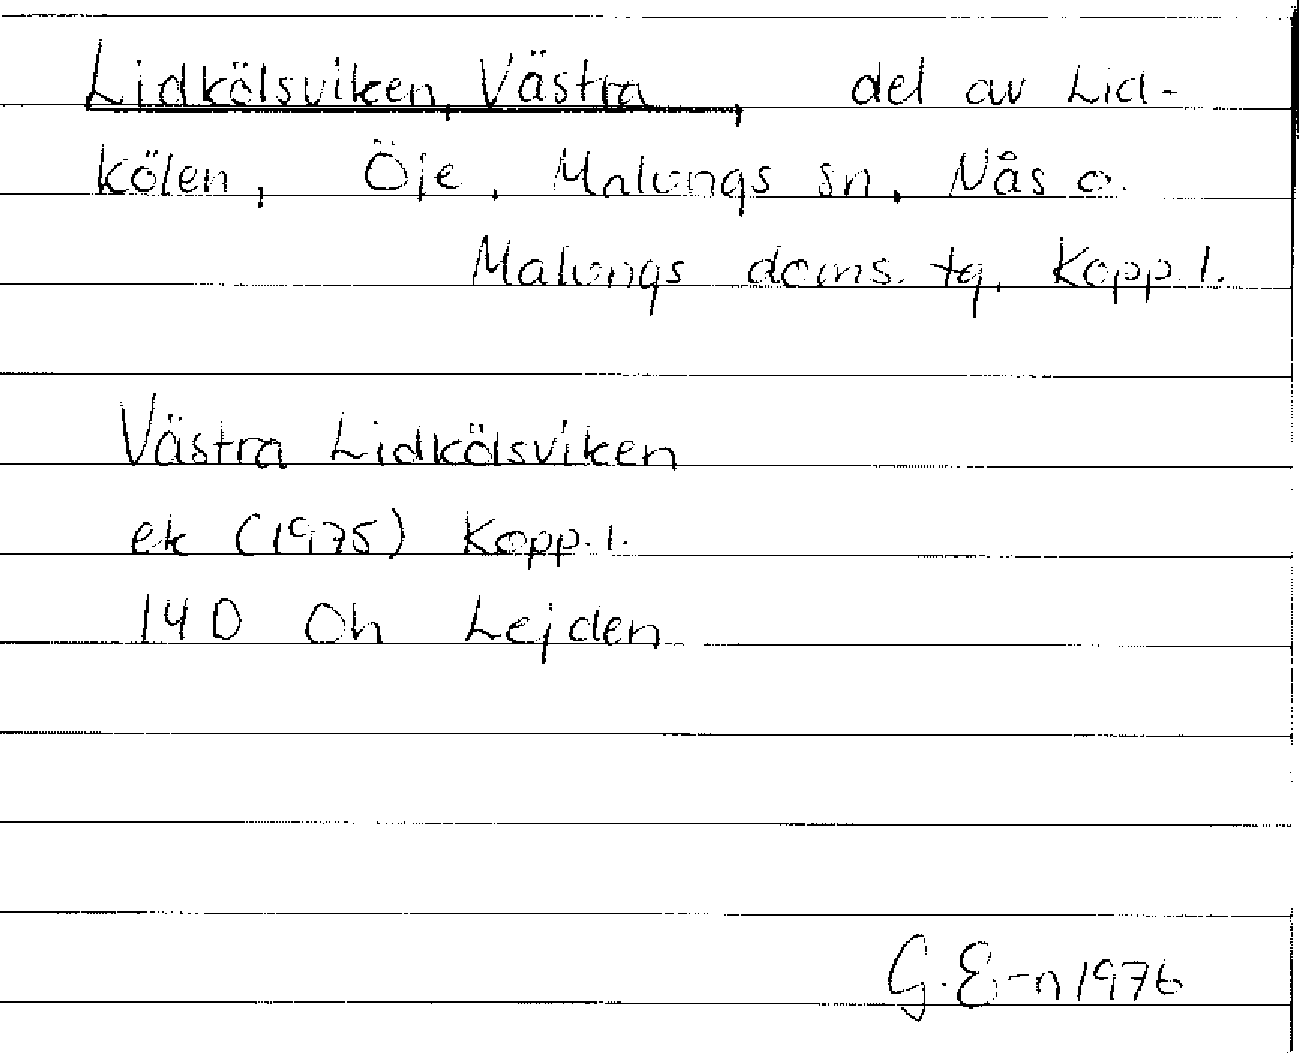 Lidkölsviken, Västra, del av Lid-
kölen, Öje, Malungs sn, Nås o.
Malungs doms. tg, Kopp. l.
Västra Lidkölsviken
ek (1975) Kopp. l.
14 D 0h Lejden
G. E-n 1976